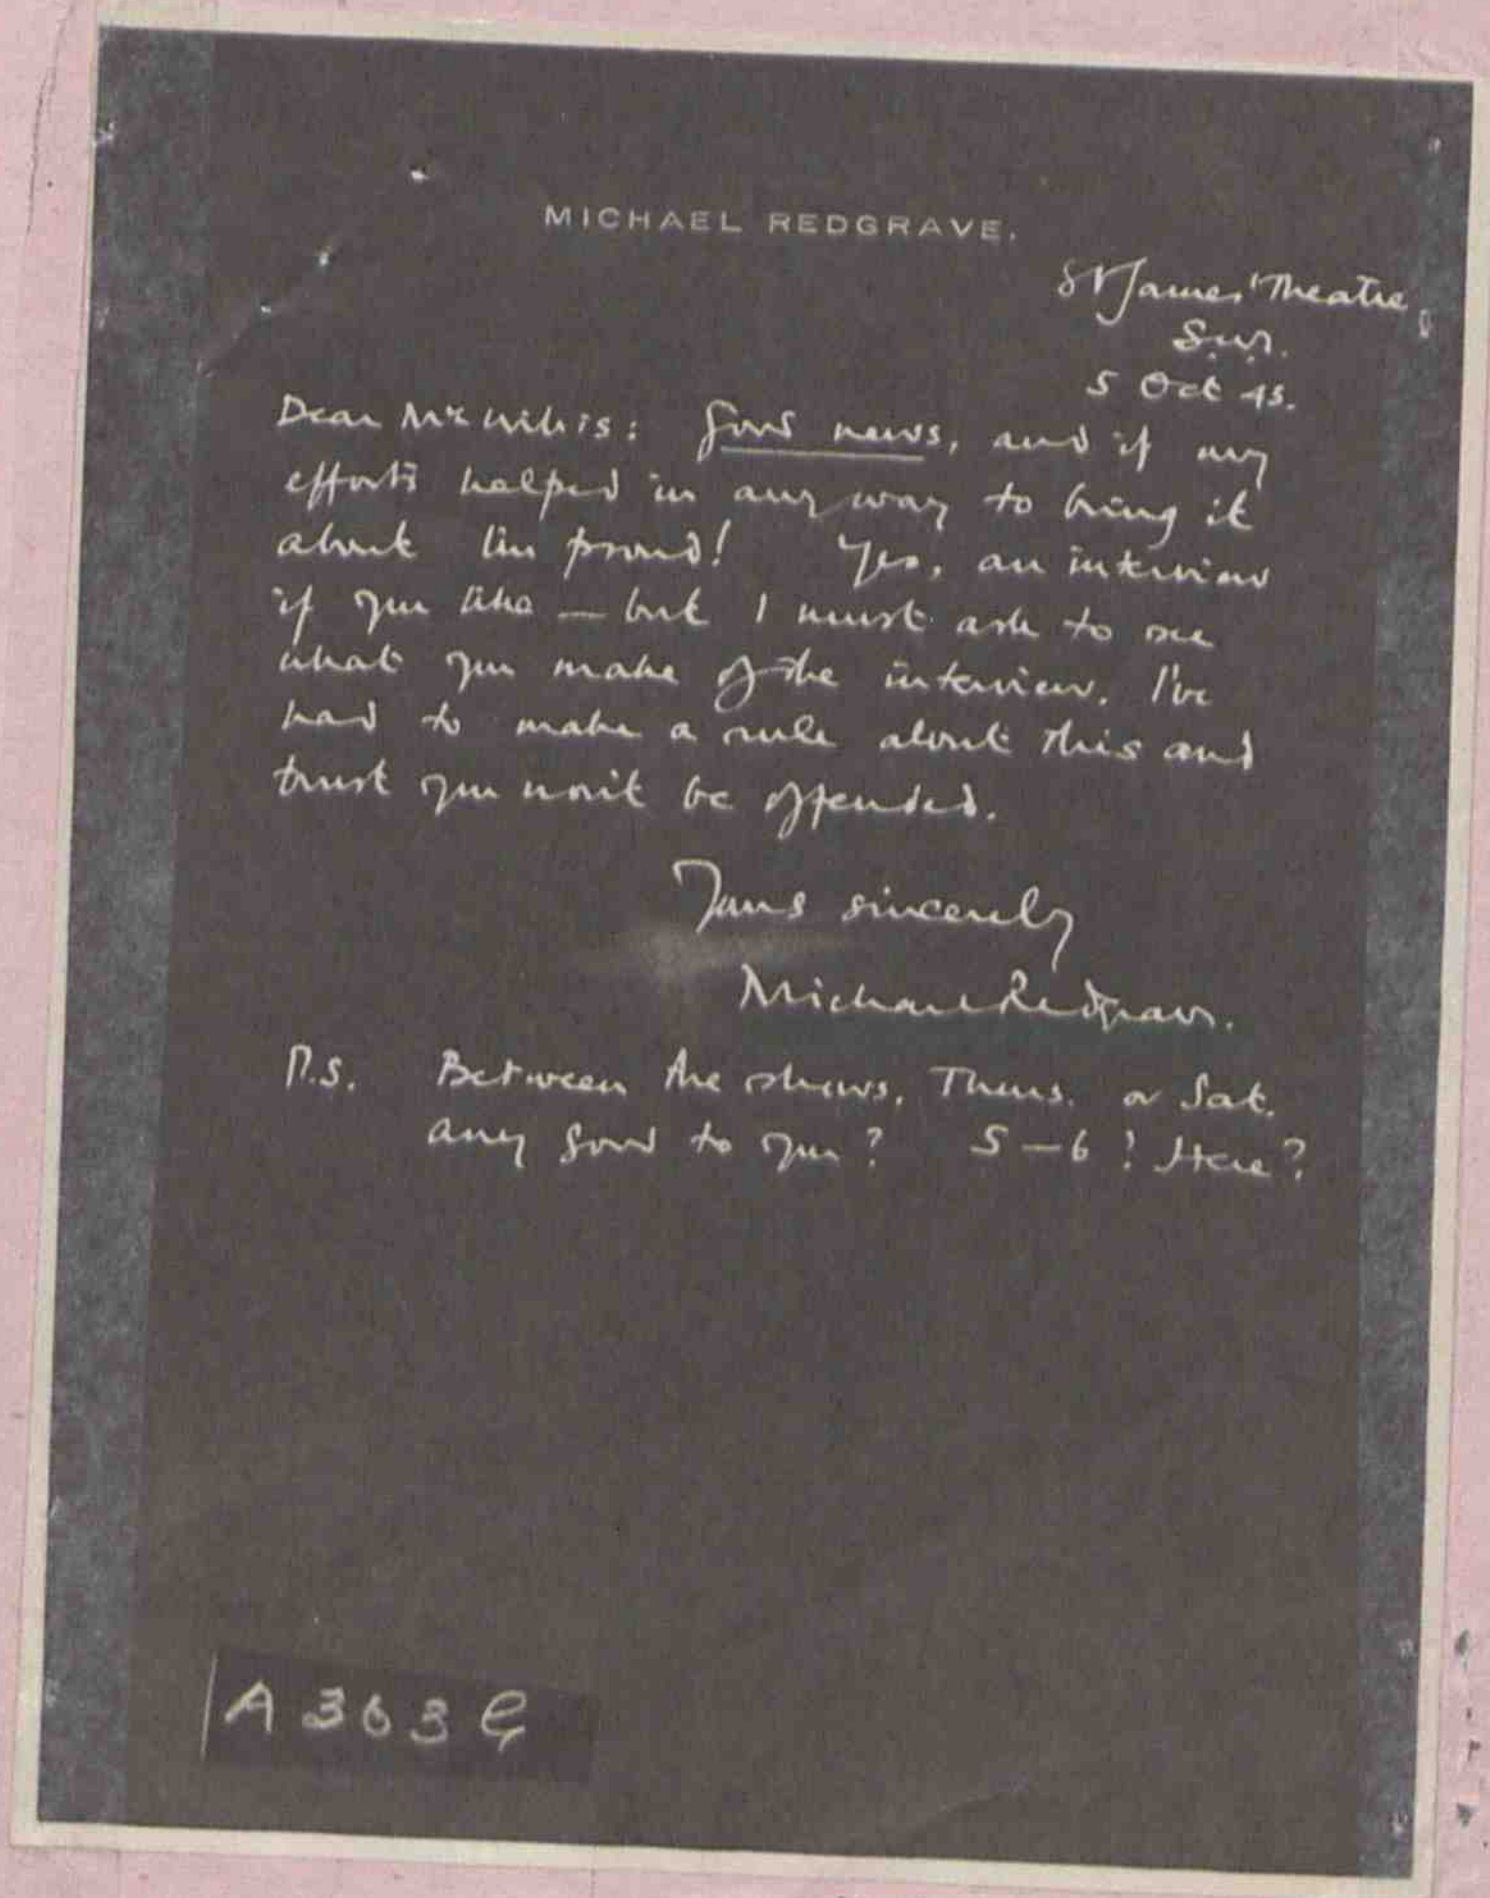 MICHAEL REDGRAVE.
St James' Theatre,
S.W.
5 Oct 45.
Dear Mr : Good news, and if my
efforts helped in any way to bring it
about I'm proud! Yes, an interview
if you like — but I must ask to see
what you make of the interview. I've
had to make a rule about this and
trust you won't be offended.
Yours sincerely
Michael Redgrave.
P.S. Between the shows, Thurs. or Sat.
any good to you? 5–6? Here?
A 363